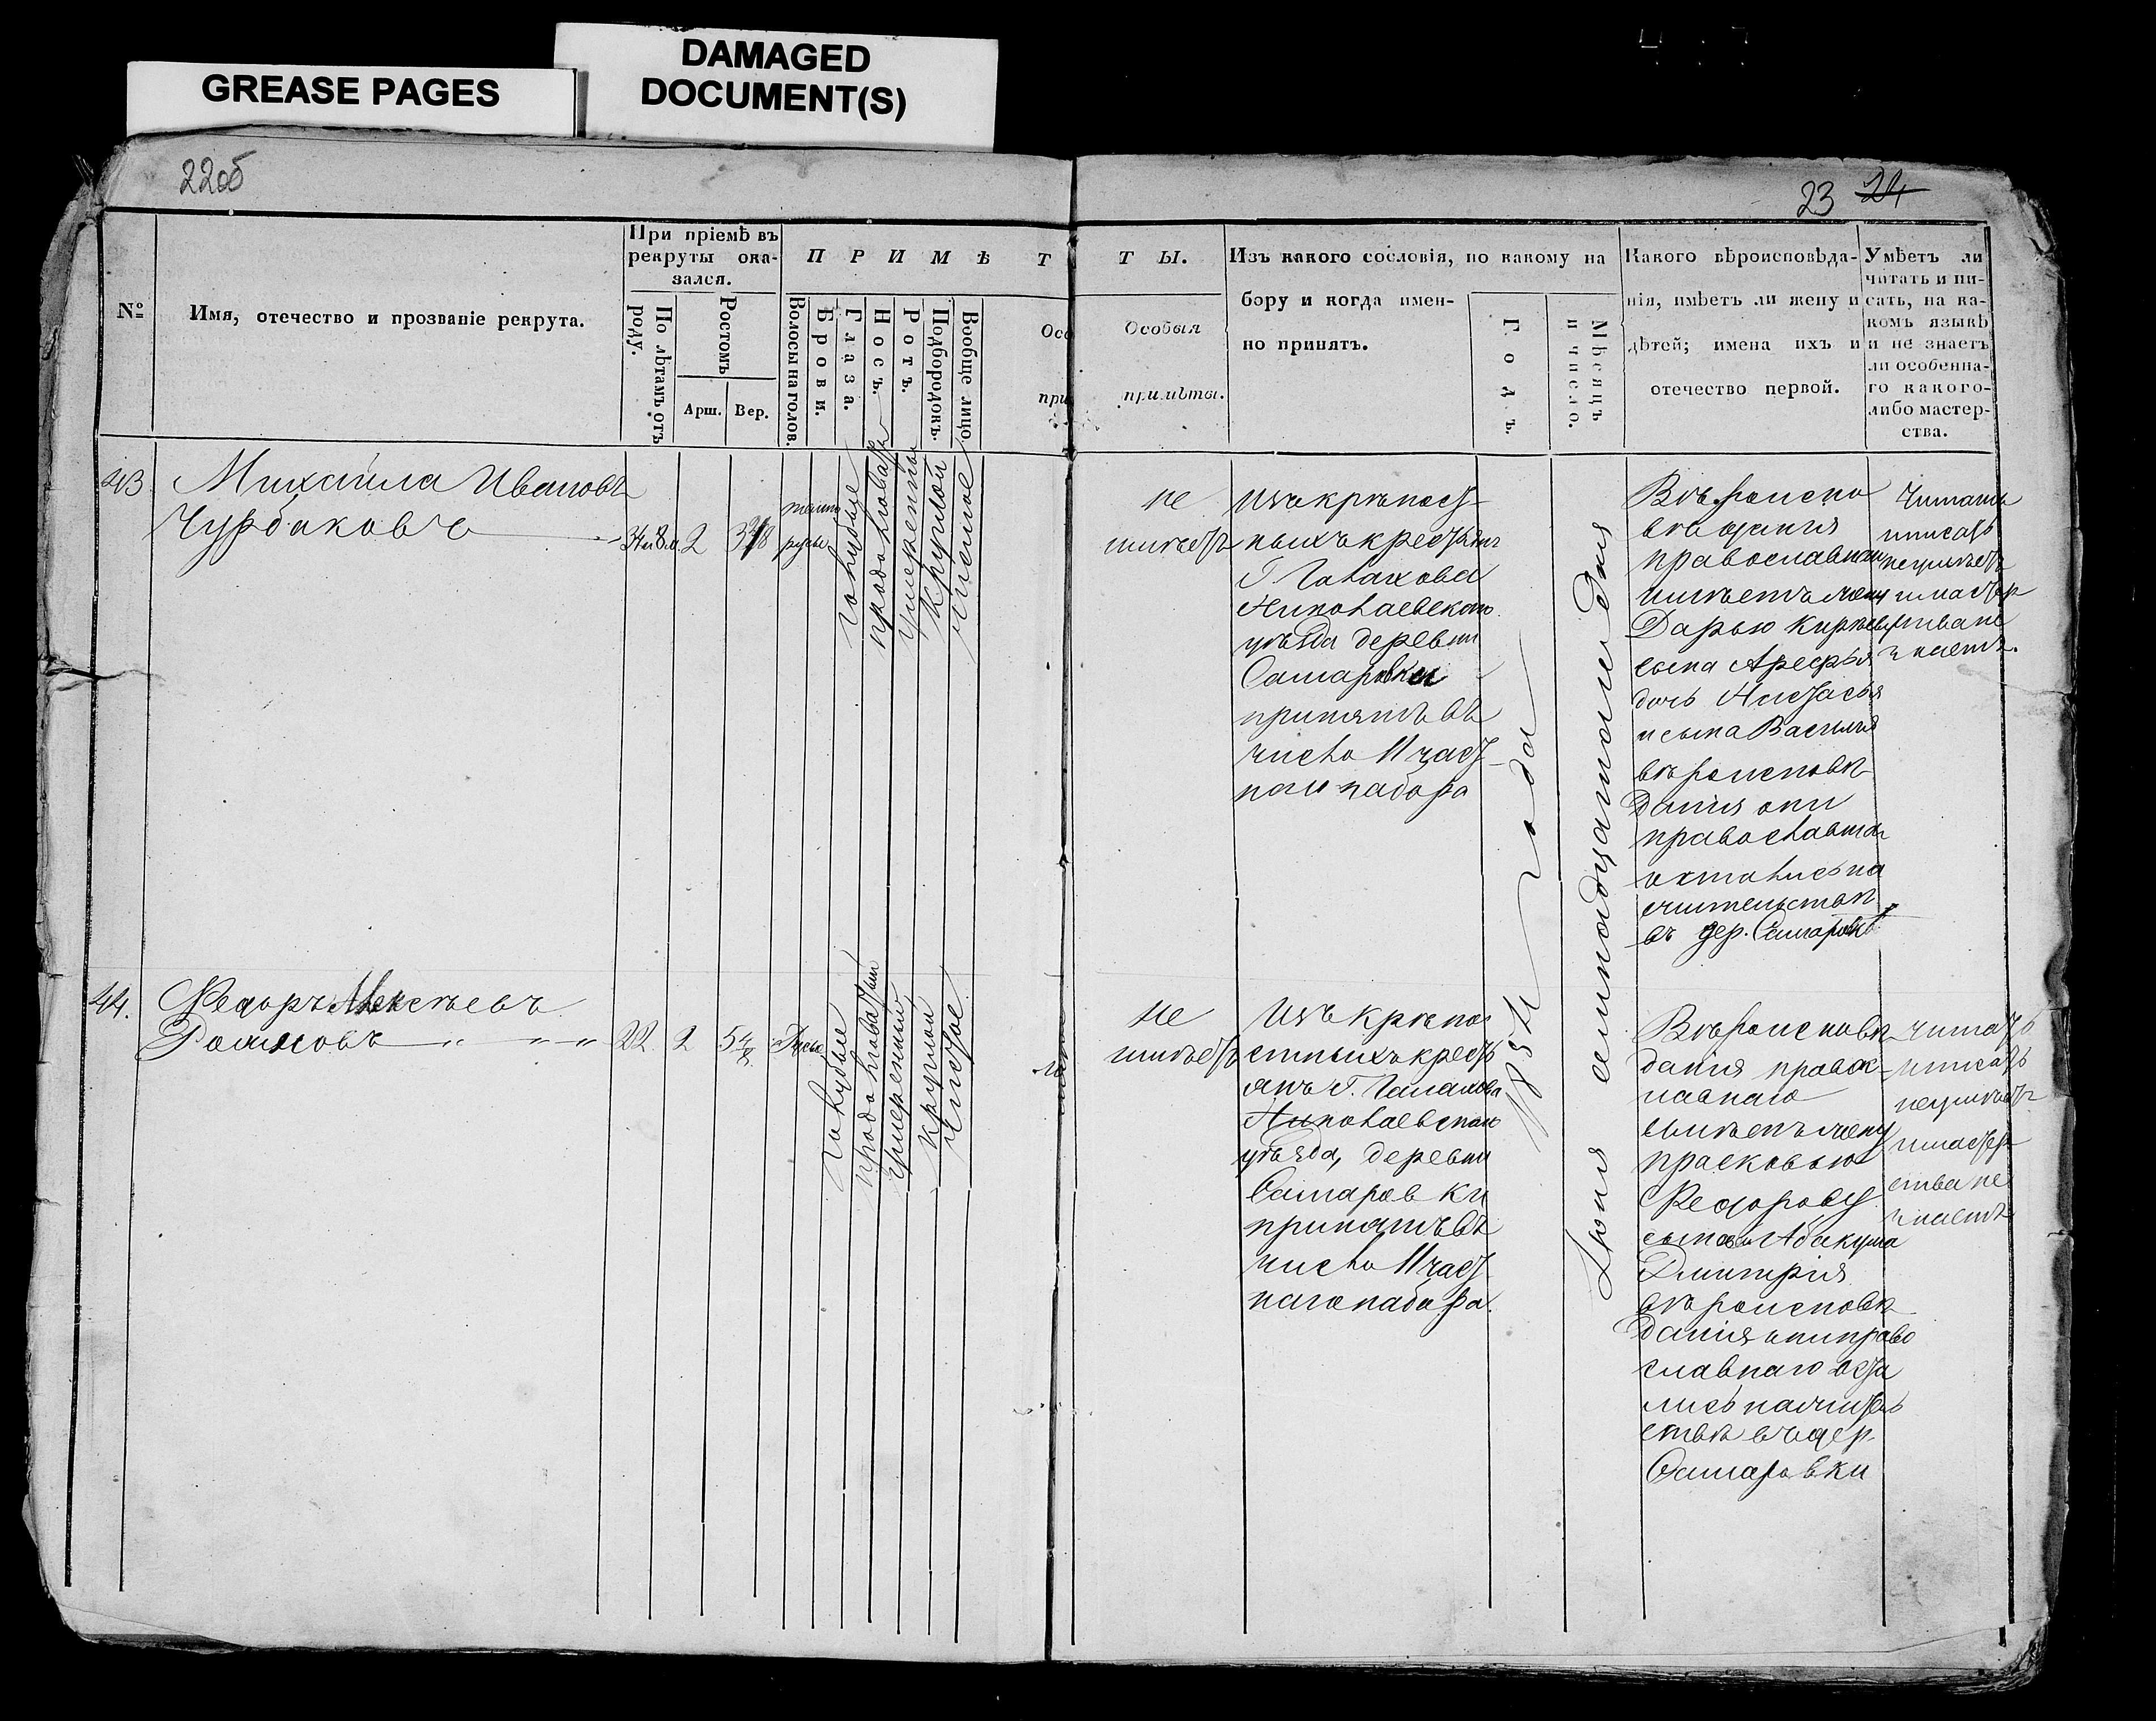 GREASE PAGES
DAMAGED
DOCUMENT(S)
22об
23 24
№
Имя, отечество и прозваніе рекрута.
При пріемѣ въ
рекруты ока-
зался.
По лѣтамъ отъ
роду.
Ростомъ
Арш.
Вер.
П Р И М Ѣ Т
Волосы на голов.
Брови.
Глаза.
Носъ.
Ротъ.
Подбородокъ.
Вообще лицо.
Осо
при
Т Ы.
Особыя
примѣты.
Изъ какого сословія, по какому на
бору и когда имен-
но принятъ.
Годъ.
Мѣсяцъ
и число.
Какого вѣроисповѣда-
нія, имѣетъ ли жену и
дѣтей; имена ихъ и
отечество первой.
Умѣетъ ли
читать и пи-
сать, на ка-
комъ языкѣ
и не знаетъ
ли особенна-
го какого-
либо мастер-
ства.
43
Михайла Ивановъ
Чурбаковъ
2
темно
русые
голубые
продолговатый
умеренный
круглой
чистое
не
имѣетъ
Изъ крѣпост-
ныхъ крестьянъ
Г Галахова
Николаевскаго
уѣзда деревни
Самаровки
принятъ въ
число 11 част-
наго набора
1854 года
Іюля семнадцатаго дня
Вѣроиспо
вѣданія
православнаго
имѣетъ жену
Дарью
сына Арефья
дочь Настасья
и сына Василья
вѣроисповѣ-
данія они
православнаго
остались на
жительствѣ
въ дер. Самаровкѣ
Читать
писать
неумѣетъ
и мастер
ства не
знаетъ.
44.
Федоръ Алексѣевъ
22
2
Русые
голубые
продолговатый
умеренный
круглой
чистое
не
имѣетъ
Изъ крѣпо
стныхъ кресть
янъ Г. Галахова
Николаевскаго
уѣзда, деревни
Самаровки
принятъ въ
число 11 част-
наго набора.
Вѣроисповѣ-
данія правос-
лавнаго
имѣетъ жену
Прасковью
Федорову
сыновей Абакума
Дмитрія
вѣроисповѣ-
данія они право
славнаго оста
лись на житель
ствѣ въ дер.
Самаровки
Читать
писать
неумѣетъ
и мастер
ства не
знаетъ